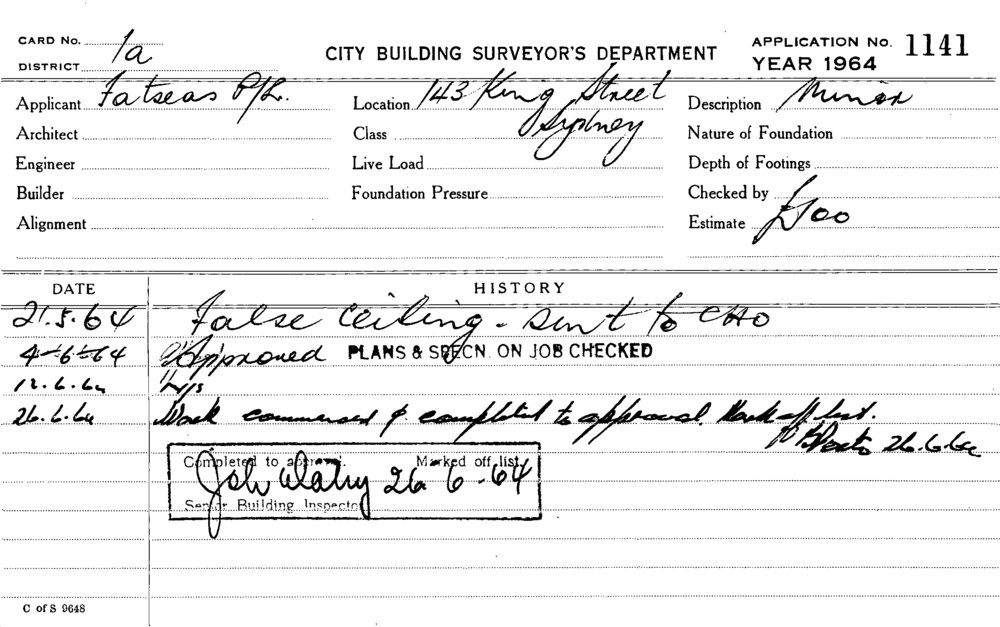 CARD No. 1a
DISTRICT
CITY BUILDING SURVEYOR'S DEPARTMENT
APPLICATION No. 1141
YEAR 1964
Applicant Fatseas P/L.
Location 143 King Street Sydney
Description Minor
Architect
Class
Nature of Foundation
Engineer
Live Load
Depth of Footings
Builder
Foundation Pressure
Checked by
Alignment
Estimate £200
DATE HISTORY
21.5.64 False Ceiling - sent to CHO
4-6-64 Approved PLANS & SPECN. ON JOB CHECKED
12.6.64 N/S
26.6.64 Work commenced & completed to approval. Mark off list.
26.6.64
Completed to approval. Marked off list.
26-6-64
Senior Building Inspector
C of S 9648